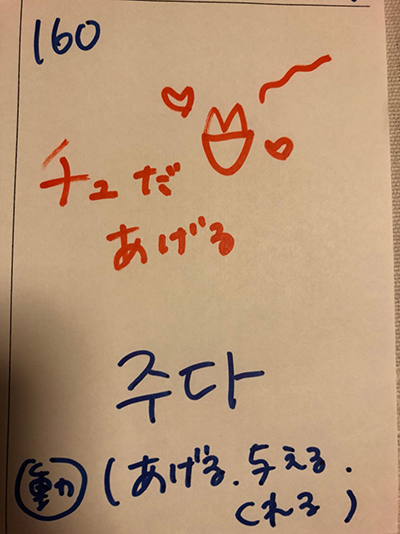 160
チュだ
あげる
주다
動 (あげる、与える、
くれる)